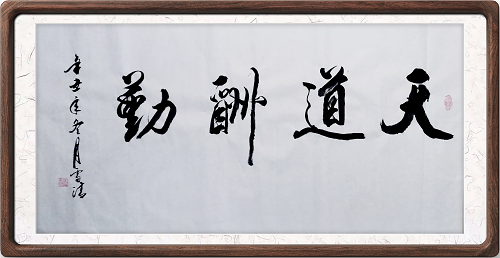 天道酬勤
辛丑年冬月雲清